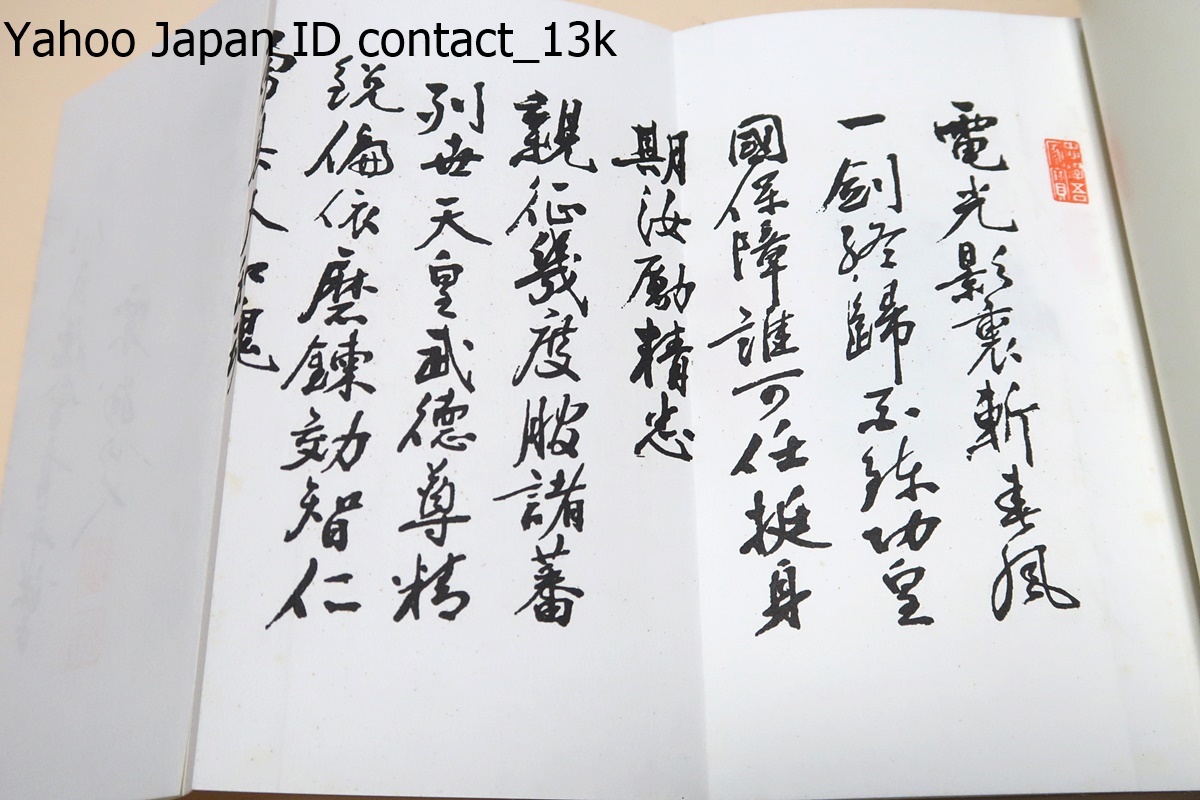 Yahoo Japan ID contact_13k
電光影裏斬春風
一劍終歸不錬功皇
國保障誰可任挺身
期汝勵精忠
親征幾度服諸蕃
列世天皇武德尊精
鋭偏依磨錬効智仁
人 鬼